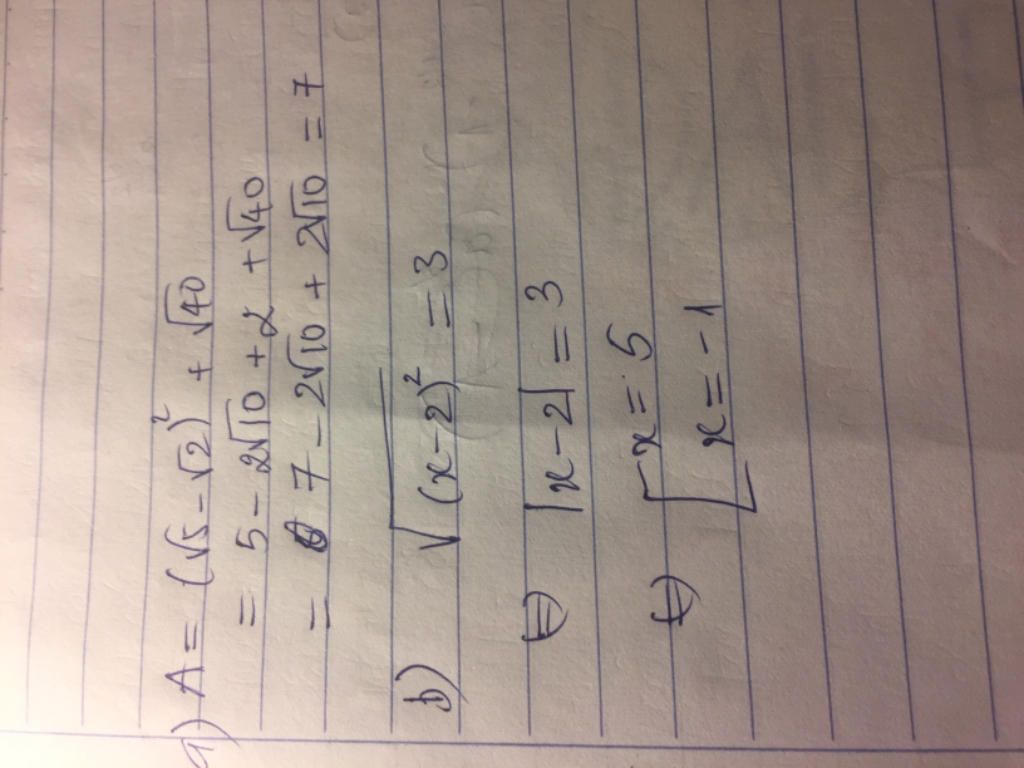 a) A = (√5 - √2)² + √40
= 5 - 2√10 + 2 + √40
= 7 - 2√10 + 2√10 = 7
b) √(x-2)² = 3
⇔ |x-2| = 3
⇔ [ x = 5
x = -1